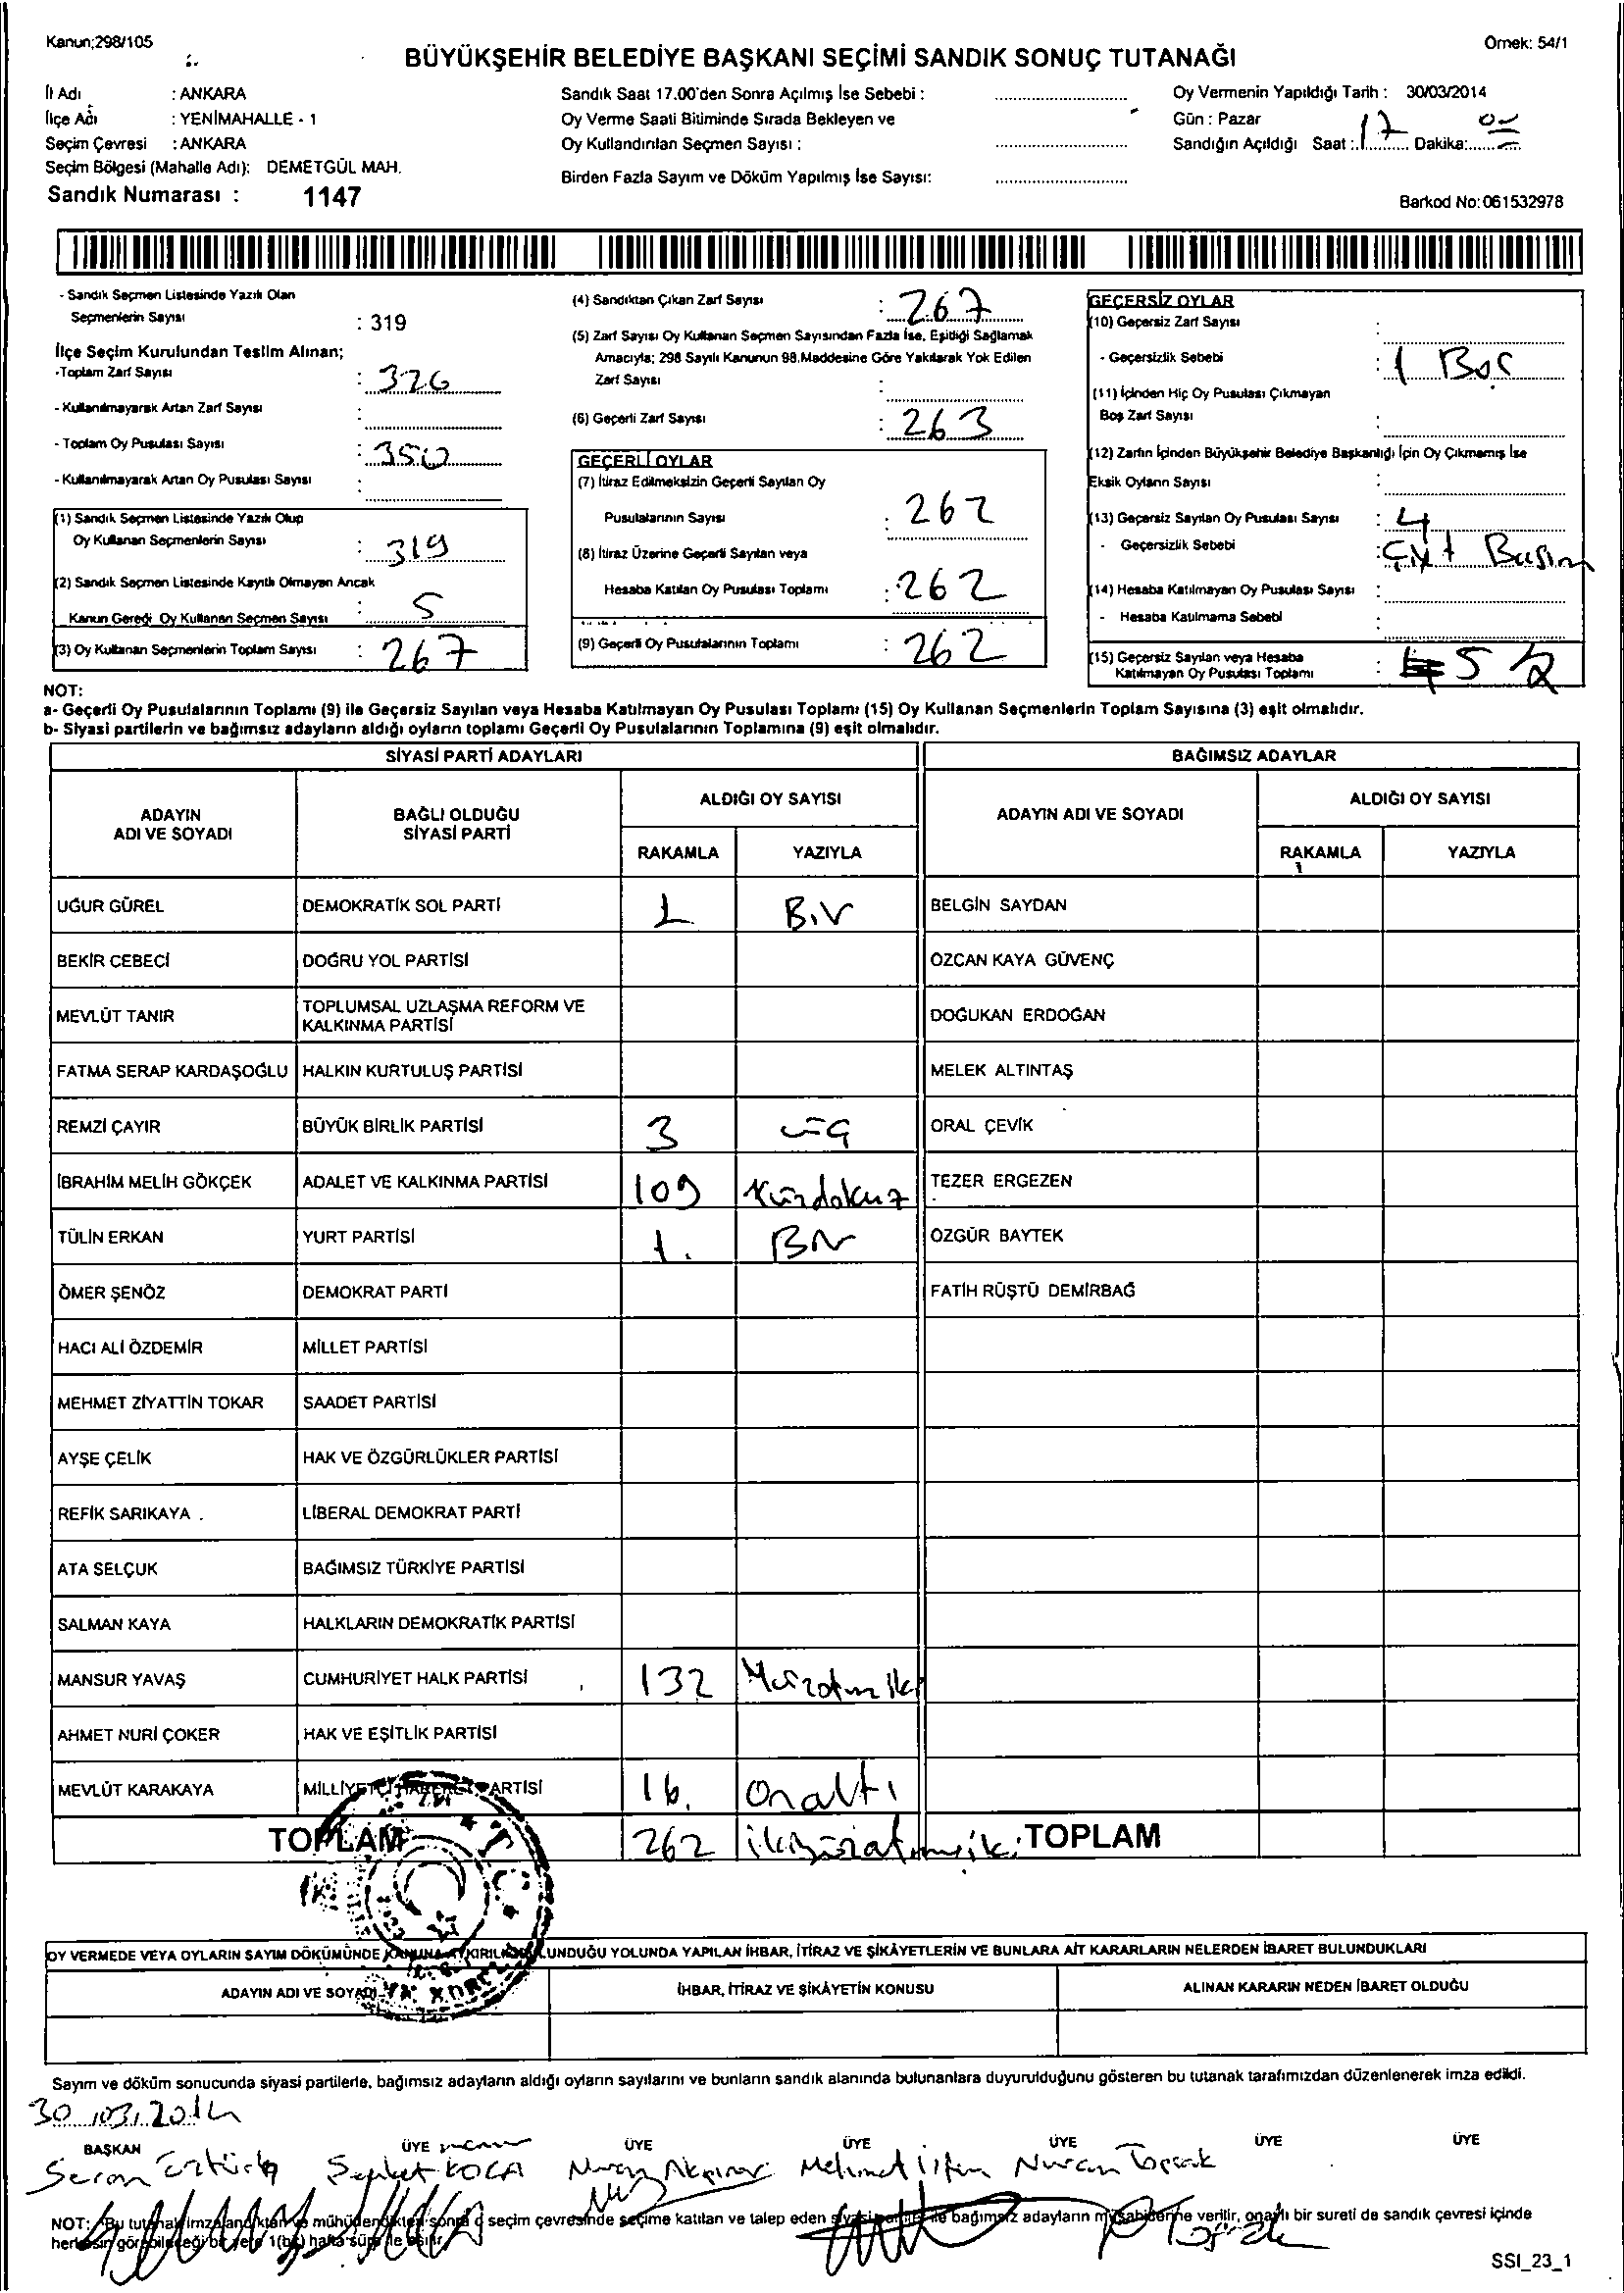 Kanun;298/105
Örnek: 54/1
BÜYÜKŞEHİR BELEDİYE BAŞKANI SEÇİMİ SANDIK SONUÇ TUTANAĞI
İl Adı : ANKARA
İlçe Adı : YENİMAHALLE - 1
Seçim Çevresi : ANKARA
Seçim Bölgesi (Mahalle Adı): DEMETGÜL MAH.
Sandık Numarası : 1147
Sandık Saat 17.00'den Sonra Açılmış İse Sebebi :
Oy Verme Saati Bitiminde Sırada Bekleyen ve
Oy Kullandırılan Seçmen Sayısı :
Birden Fazla Sayım ve Döküm Yapılmış İse Sayısı:
Oy Vermenin Yapıldığı Tarih : 30/03/2014
Gün : Pazar
Sandığın Açıldığı Saat : 17 Dakika:
Barkod No:061532978
- Sandık Seçmen Listesinde Yazılı Olan
Seçmenlerin Sayısı : 319
İlçe Seçim Kurulundan Teslim Alınan;
-Toplam Zarf Sayısı : 326
- Kullanılmayarak Artan Zarf Sayısı :
- Toplam Oy Pusulası Sayısı : 350
- Kullanılmayarak Artan Oy Pusulası Sayısı :
(1) Sandık Seçmen Listesinde Yazılı Olup
Oy Kullanan Seçmenlerin Sayısı : 319
(2) Sandık Seçmen Listesinde Kayıtlı Olmayan Ancak
Kanun Gereği Oy Kullanan Seçmen Sayısı : 5
(3) Oy Kullanan Seçmenlerin Toplam Sayısı : 267
(4) Sandıktan Çıkan Zarf Sayısı : 267
(5) Zarf Sayısı Oy Kullanan Seçmen Sayısından Fazla İse, Eşitliği Sağlamak
Amacıyla; 298 Sayılı Kanunun 98.Maddesine Göre Yakılarak Yok Edilen
Zarf Sayısı :
(6) Geçerli Zarf Sayısı : 263
GEÇERLİ OYLAR
(7) İtiraz Edilmeksizin Geçerli Sayılan Oy
Pusulalarının Sayısı : 262
(8) İtiraz Üzerine Geçerli Sayılan veya
Hesaba Katılan Oy Pusulası Toplamı : 262
(9) Geçerli Oy Pusulalarının Toplamı : 262
GEÇERSİZ OYLAR
(10) Geçersiz Zarf Sayısı :
- Geçersizlik Sebebi : 1 Boş
(11) İçinden Hiç Oy Pusulası Çıkmayan
Boş Zarf Sayısı :
(12) Zarfın İçinden Büyükşehir Belediye Başkanlığı İçin Oy Çıkmamış İse
Eksik Oyların Sayısı :
(13) Geçersiz Sayılan Oy Pusulası Sayısı : 4
- Geçersizlik Sebebi : Çift Basım
(14) Hesaba Katılmayan Oy Pusulası Sayısı :
- Hesaba Katılmama Sebebi :
(15) Geçersiz Sayılan veya Hesaba
Katılmayan Oy Pusulası Toplamı : 5
NOT:
a- Geçerli Oy Pusulalarının Toplamı (9) ile Geçersiz Sayılan veya Hesaba Katılmayan Oy Pusulası Toplamı (15) Oy Kullanan Seçmenlerin Toplam Sayısına (3) eşit olmalıdır.
b- Siyasi partilerin ve bağımsız adayların aldığı oyların toplamı Geçerli Oy Pusulalarının Toplamına (9) eşit olmalıdır.
SİYASİ PARTİ ADAYLARI
BAĞIMSIZ ADAYLAR
ADAYIN ADI VE SOYADI
BAĞLI OLDUĞU SİYASİ PARTİ
ALDIĞI OY SAYISI
RAKAMLA YAZIYLA
ADAYIN ADI VE SOYADI
ALDIĞI OY SAYISI
RAKAMLA YAZIYLA
UĞUR GÜREL DEMOKRATİK SOL PARTİ 1 Bir BELGİN SAYDAN
BEKİR CEBECİ DOĞRU YOL PARTİSİ ÖZCAN KAYA GÜVENÇ
MEVLÜT TANIR TOPLUMSAL UZLAŞMA REFORM VE KALKINMA PARTİSİ DOĞUKAN ERDOĞAN
FATMA SERAP KARDAŞOĞLU HALKIN KURTULUŞ PARTİSİ MELEK ALTINTAŞ
REMZİ ÇAYIR BÜYÜK BİRLİK PARTİSİ 3 üç ORAL ÇEVİK
İBRAHİM MELİH GÖKÇEK ADALET VE KALKINMA PARTİSİ 109 Yüzdokuz TEZER ERGEZEN
TÜLİN ERKAN YURT PARTİSİ 1. Bir ÖZGÜR BAYTEK
ÖMER ŞENÖZ DEMOKRAT PARTİ FATİH RÜŞTÜ DEMİRBAĞ
HACI ALİ ÖZDEMİR MİLLET PARTİSİ
MEHMET ZİYATTİN TOKAR SAADET PARTİSİ
AYŞE ÇELİK HAK VE ÖZGÜRLÜKLER PARTİSİ
REFİK SARIKAYA . LİBERAL DEMOKRAT PARTİ
ATA SELÇUK BAĞIMSIZ TÜRKİYE PARTİSİ
SALMAN KAYA HALKLARIN DEMOKRATİK PARTİSİ
MANSUR YAVAŞ CUMHURİYET HALK PARTİSİ 132 Yüzotuziki
AHMET NURİ ÇOKER HAK VE EŞİTLİK PARTİSİ
MEVLÜT KARAKAYA MİLLİYETÇİ HAREKET PARTİSİ 16. Onaltı
TOPLAM 262 ikiyüzaltmışiki TOPLAM
OY VERMEDE VEYA OYLARIN SAYIM DÖKÜMÜNDE KANUNA AYKIRILIK BULUNDUĞU YOLUNDA YAPILAN İHBAR, İTİRAZ VE ŞİKÂYETLERİN VE BUNLARA AİT KARARLARIN NELERDEN İBARET BULUNDUKLARI
ADAYIN ADI VE SOYADI İHBAR, İTİRAZ VE ŞİKÂYETİN KONUSU ALINAN KARARIN NEDEN İBARET OLDUĞU
Sayım ve döküm sonucunda siyasi partilerle, bağımsız adayların aldığı oyların sayılarını ve bunların sandık alanında bulunanlara duyurulduğunu gösteren bu tutanak tarafımızdan düzenlenerek imza edildi.
30.03.2014
BAŞKAN ÜYE ÜYE ÜYE ÜYE ÜYE ÜYE
Öztürk KOCA Nuray Akpınar Mehmet Nuran Toprak
NOT: Bu tutanak imzalandıktan ve mühürlendikten sonra o seçim çevresinde seçime katılan ve talep eden siyasi partiler ile bağımsız adayların müşahitlerine verilir, onaylı bir sureti de sandık çevresi içinde
herkesin görebileceği bir yere 1(bir) hafta süre ile asılır.
SSI_23_1